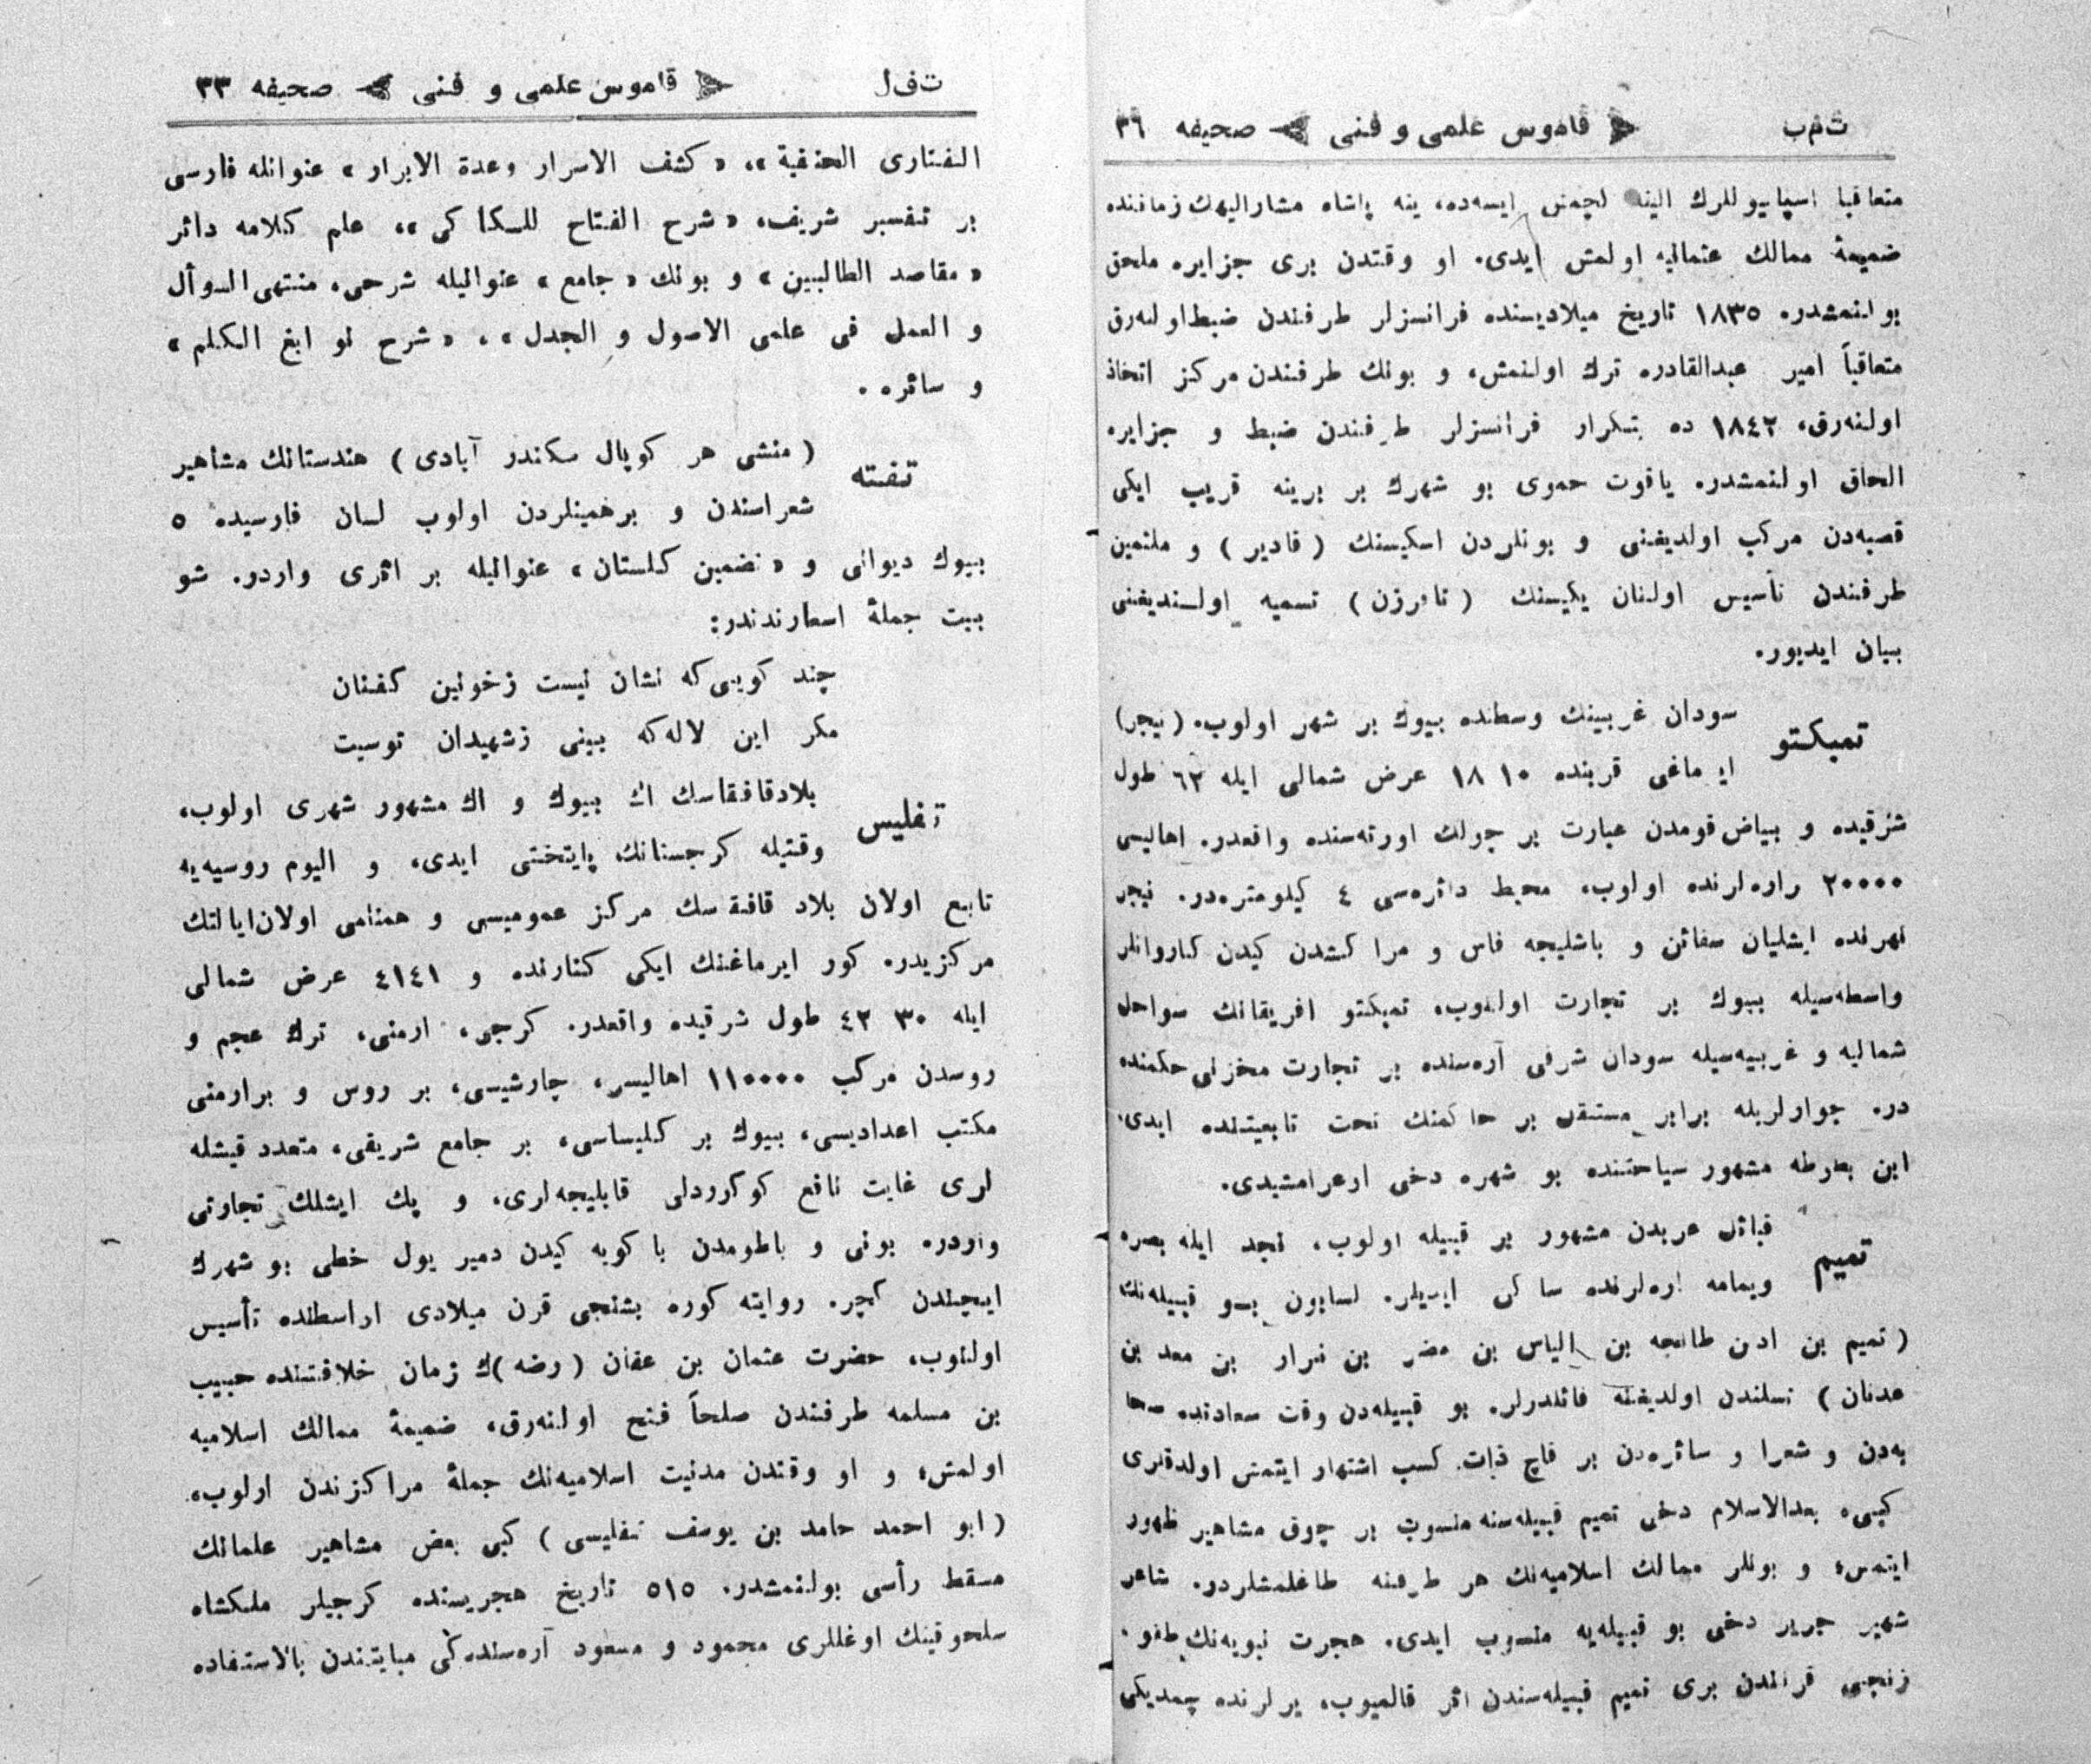 تمب قاموس علمی و فنی صحیفه ٣٦
متعاقبا اسپانیوللرك الینه کچمش ایسه‌ده، ینه پاشاه مشارالیهك زماننده
ضمیمهٔ ممالك عثمانیه اولمش ایدی. او وقتدن بری جزایره ملحق
بولنمشدر. ١٨٣٥ تاریخ میلادیسنده فرانسزلر طرفندن ضبط اولنه‌رق
متعاقباً امیر عبدالقادره ترك اولنمش، و بونك طرفندن مرکز اتخاذ
اولنه‌رق، ١٨٤٢ ده بتکرار فرانسزلر طرفندن ضبط و جزایره
الحاق اولنمشدر. یاقوت حموی بو شهرك بر برینه قریب ایکی
قصبه‌دن مرکب اولدیغنی و بونلردن اسکیسنك (قادیر) و ملثمین
طرفندن تأسیس اولنان یکیسنك (تافرزن) تسمیه اولندیغنی
بیان ایدیور.
تمبکتو سودان غربینك وسطنده بیوك بر شهر اولوب، (نیجر)
ایرماغی قربنده ١٠ ١٨ عرض شمالی ایله ٦٢ طول
شرقیده و بیاض قومدن عبارت بر چولك اورته‌سنده واقعدر. اهالیسی
٢٠٠٠٠ راده‌لرنده اولوب، محیط دائره‌سی ٤ کیلومتره‌در. نیجر
نهرنده ایشلیان سفائن و باشلیجه فاس و مراکشدن کیدن کاروانلر
واسطه‌سیله بیوك بر تجارت اولنوب، تمبکتو افریقانك سواحل
شمالیه و غربیه‌سیله سودان شرقی آره‌سنده بر تجارت مخزنی حکمنده
در. جوارلریله برابر مستقل بر حاکمنك تحت تابعیتنده ایدی.
ابن بطوطه مشهور سیاحتنده بو شهره دخی اوغرامشیدی.
تمیم قبائل عربدن مشهور بر قبیله اولوب، نجد ایله بصره
ویمامه اره‌لرنده ساکن ایدیلر. نسابون بو قبیله‌نك
(تمیم بن ادبن طابخه بن الیاس بن مضر بن نزار بن معد بن
عدنان) نسلندن اولدیغنه قائلدرلر. بو قبیله‌دن وقت سعادتده صحا
به‌دن و شعرا و سائره‌دن بر قاچ ذات کسب اشتهار ایتمش اولدقلری
کبی، بعدالاسلام دخی تمیم قبیله‌سنه منسوب بر چوق مشاهیر ظهور
ایتمش، و بونلر ممالك اسلامیه‌نك هر طرفنه طاغلمشلردر. شاعر
شهیر جریر دخی بو قبیله‌یه منسوب ایدی. هجرت نبویه‌نك طقو
زنجی قرنندن بری تمیم قبیله‌سندن اثر قالمیوب، یرلرنده چمدیکی
تفل قاموس علمی و فنی صحیفه ٣٣
الفتاری الحنفیة»، «کشف الاسرار وعدة الابرار» عنوانله فارسی
بر تفسیر شریف، «شرح المفتاح للسکاکی»، علم کلامه دائر
«مقاصد الطالبین» و بونك «جامع» عنوانیله شرحی، منتهی السوأل
و العمل فی علمی الاصول و الجدل»، «شرح نو ابغ الکلم»
و سائره.
تفته (منشی هر کوپال سکندر آبادی) هندستانك مشاهیر
شعراسندن و برهمینلردن اولوب لسان فارسیده ٥
بیوك دیوانی و «تضمین کلستان» عنوانیله بر اثری واردر. شو
بیت جملهٔ اسعارندندر:
چند کویی‌که نشان نیست زخونین کفنان
مکر این لاله‌که بینی زشهیدان توسیت
تفلیس بلادقافقاسك اك بیوك و اك مشهور شهری اولوب،
وقتیله کرجستانك پایتختی ایدی، و الیوم روسیه‌یه
تابع اولان بلاد قافقاسك مرکز عمومیسی و همنامی اولان‌ایالتك
مرکزیدر. کور ایرماغنك ایکی کنارنده و ٤١٤١ عرض شمالی
ایله ٣٠ ٤٢ طول شرقیده واقعدر. کرجی، ارمنی، ترك عجم و
روسدن مرکب ١١٠٠٠٠ اهالیسی، چارشیسی، بر روس و برارمنی
مکتب اعدادیسی، بیوك بر کلیساسی، بر جامع شریفی، متعدد قیشله
لری غایت نافع کوکردلی قاپلیجه‌لری، و پك ایشلك تجارتی
واردر. پوتی و باطومدن باکویه کیدن دمیر یول خطی بو شهرك
ایچندن کچر. روایته کوره بشنجی قرن میلادی اواسطنده تأسیس
اولنوب، حضرت عثمان بن عفان (رضه)ك زمان خلافتنده حبیب
بن مسلمه طرفندن صلحاً فتح اولنه‌رق، ضمیمهٔ ممالك اسلامیه
اولمش، و او وقتدن مدنیت اسلامیه‌نك جملهٔ مراکزندن اولوب،
(ابو احمد حامد بن یوسف تفلیسی) کبی بعض مشاهیر علمانك
مسقط رأسی بولنمشدر. ٥١٥ تاریخ هجریسنده کرجیلر ملکشاه
سلجوقینك اوغللری محمود و مسعود آره‌سنده‌کی مباینتدن بالاستفاده